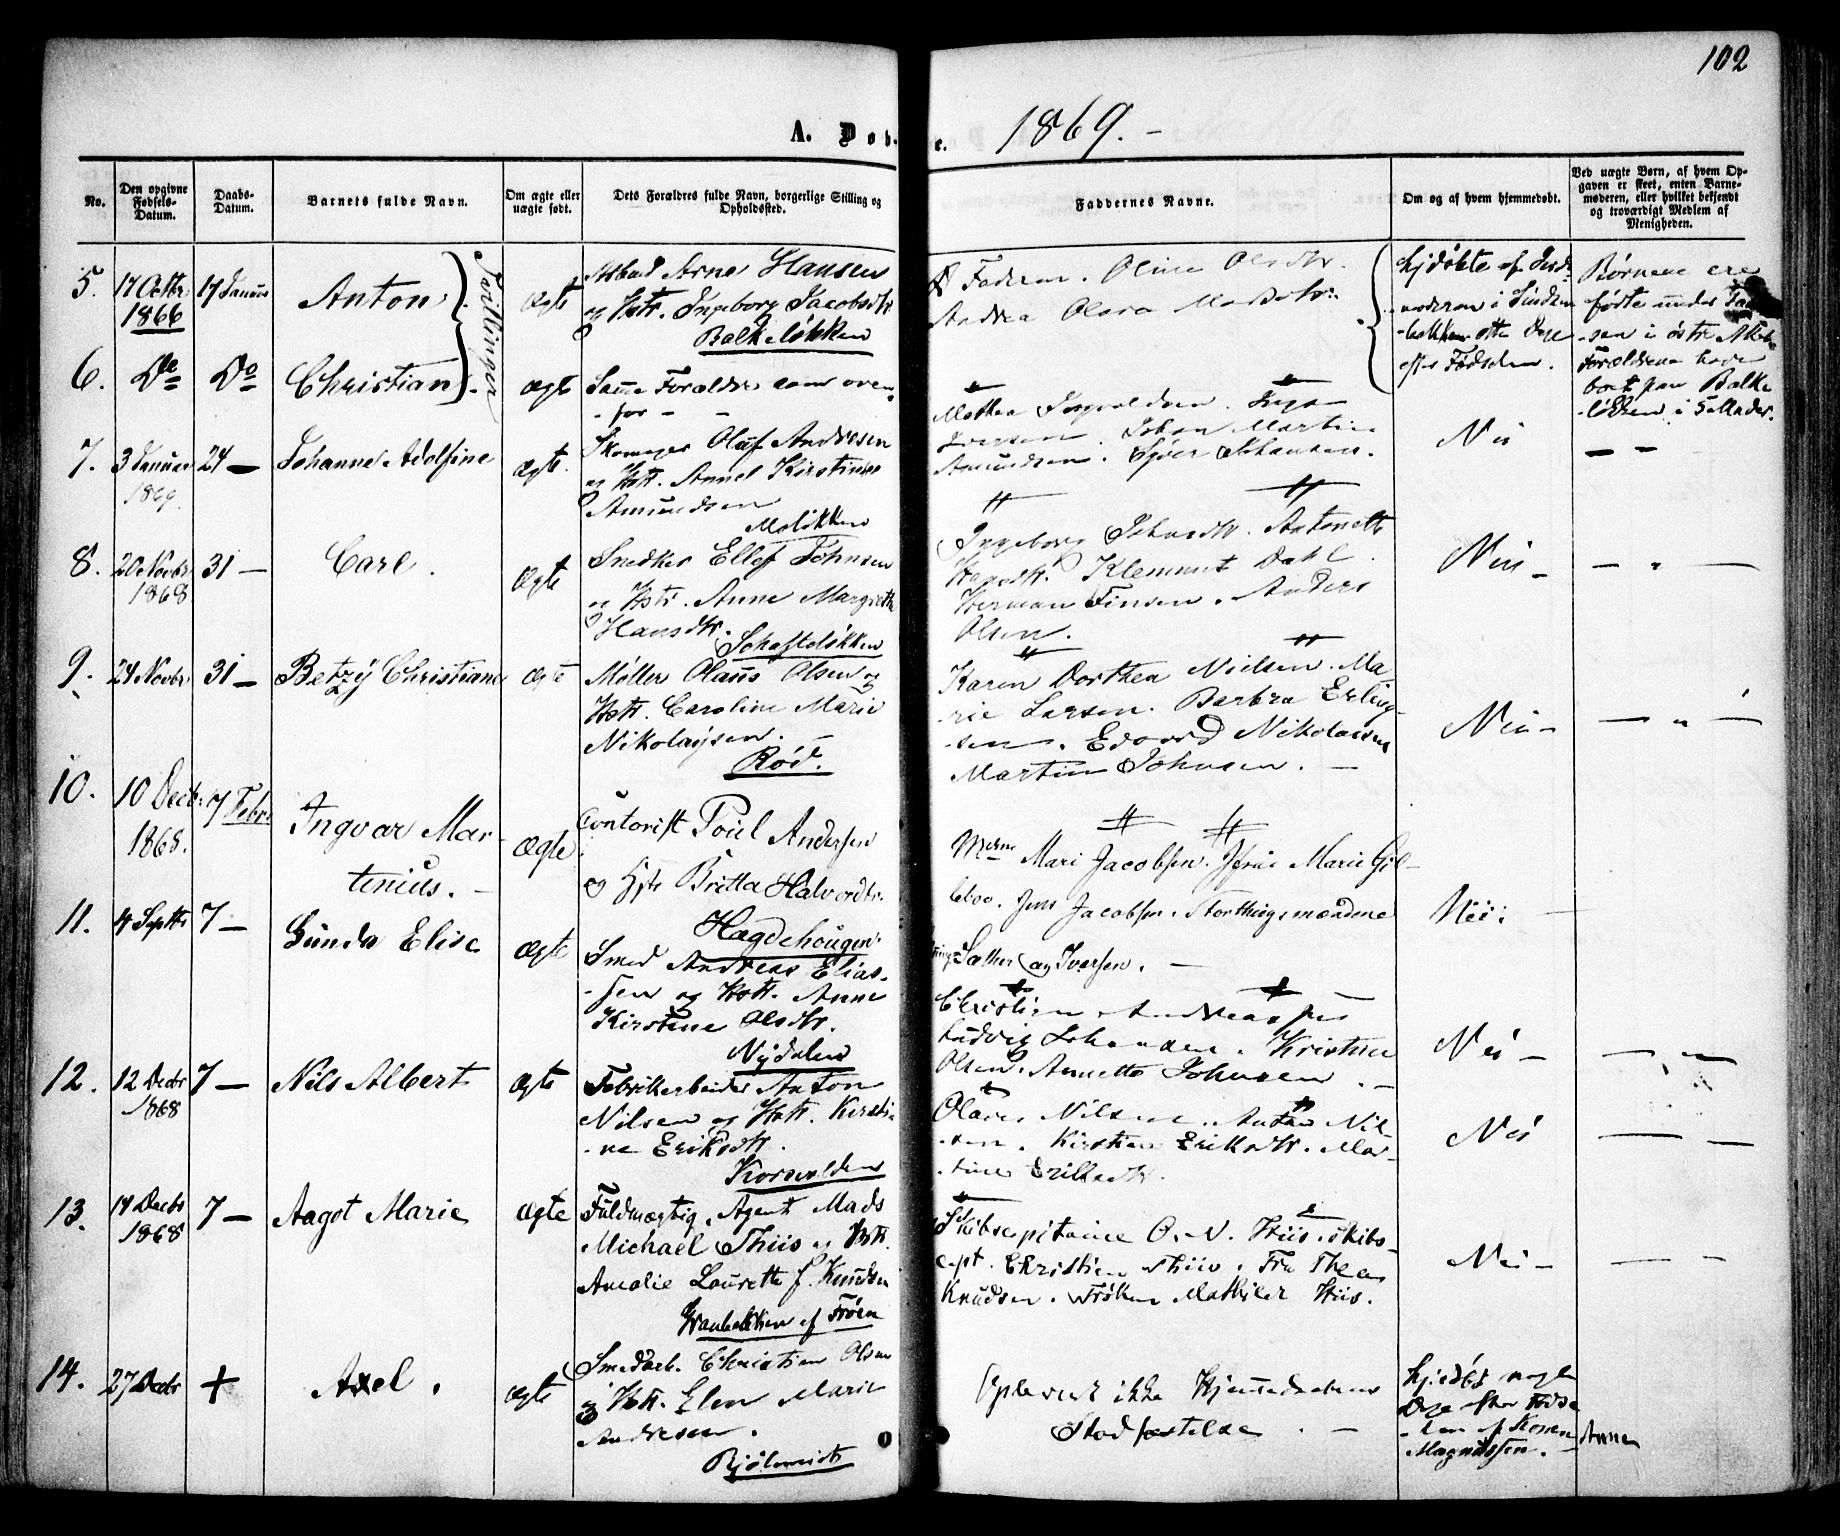 102
A. Døb-
e. 1869. -
No.
Den opgivne Fødsels-Datum.
Daabs-Datum.
Barnets fulde Navn.
Om ægte eller uægte født.
Dets Forældres fulde Navn, borgerlige Stilling og Opholdssted.
Faddernes Navne.
Om og af hvem hjemmedøbt.
Ved uægte Børn, af hvem Opgaven er skeet, enten Barnemoderen, eller hvilket bekjendt og troværdigt Medlem af Menigheden.
5. 17 Octbr 1866
17 Januar
Anton
Tvillinger
Ægte
Arne Hansen
og Hstr. Ingeborg Jacobsdtr
Balkeløkken
Faderen. Oline Olsdtr.
Andrea Olava
hjdøbte af
efter Fødselen.
Børnene ere
fødte under
-sen i østre Aker
Forældrene have
boet paa Balke
-løkken i 5 Mader.
6. Do Do
Christian
Ægte
Samme Forældre som oven-
- for - -
7. 3 Januar 1869.
24 —
Johanne Adolfine
Ægte.
Skomager Oluf Andresen
og Hstr. Anne Kirstine
Amundsen
Moløkken
Mathea Ingvaldsen. Inga
Iversen. Johan Martin
Amundsen. Syver Johansen.
Nei
— —
8. 20 Novbr 1868
31 —
Carl.
Ægte
Snedker Ellef Johnsen
og Hstr. Anne Margrethe
Hansdtr.
Schafteløkken
Ingeborg Johnsdtr. Antonette
Hansdtr. Klemmet Dahl.
Herman Finsen. Anders
Olsen.
Nei —
— " —
9. 24 Novbr
31 —
Betzy Christiane
Ægte
Møller Olaus Olsen og
Hstr. Caroline Marie
Nikolaysen. —
Rød.
Karen Dorthea Nielsen. Ma-
-rie Larsen. Barbra Erling-
-sen. Edvard Nikolaisen
Martin Johnsen. —
Nei —
— " —
10. 10 Decb. 1868.
7 Febr.
Ingvar Mar-
tinius. —
Ægte
Contorist Poul Andersen
og Hstr Britta Halvordtr.
Hægdehougen.
Mdme Mari Jacobsen. Marie Gil-
leboe. Jens Jacobsen. Storthingsmændene
Sæther og Iversen. —
Nei: —
11. 4 Septbr
7 —
Gunda Elise
Ægte
Smed Andreas Elias-
-sen og Hstr. Anne
Kirstine Olsdtr.
Nydalen
Christian Andreassen
Ludvig Johansen. Kristine
Olsen. Annette Johnsen. —
Nei —
— —
12. 12 Decbr 1868
7 —
Nils Albert
Ægte
Fabrikarbeider Anton
Nilsen og Hstr. Kirsti-
-ne Eriksdtr.
Korsvolden
Olaves Nilsen. Anton Nil-
-sen. Kirstine Eriksdtr. Mar-
-tine Eriksdtr.
Nei
— —
13. 14 Decbr 1868
7 —
Aagot Marie
Ægte
Fuldmægtig, Agent Mads
Michael Thiis og Hstr.
Amalie Laurette f. Knudsen
Granbakken af Frøen
Skibscapitaine O. N. Thiis. Skibs-
capt. Christian Thiis. Fru Thea
Knudsen. Frøken Mathilde Thiis.
Nei —
— —
14. 27 Decbr
+
Axel.
Ægte
Smedarb. Christian Olsen
og Hstr. Elen Marie
Andresen.
Bjølsenidt
Oplevede ikke Hjemmedaabens
Stadfæstelse. —
hjdøbt nogle
Dage efter Fødse
-len af Karen Anne
Magnussen. —